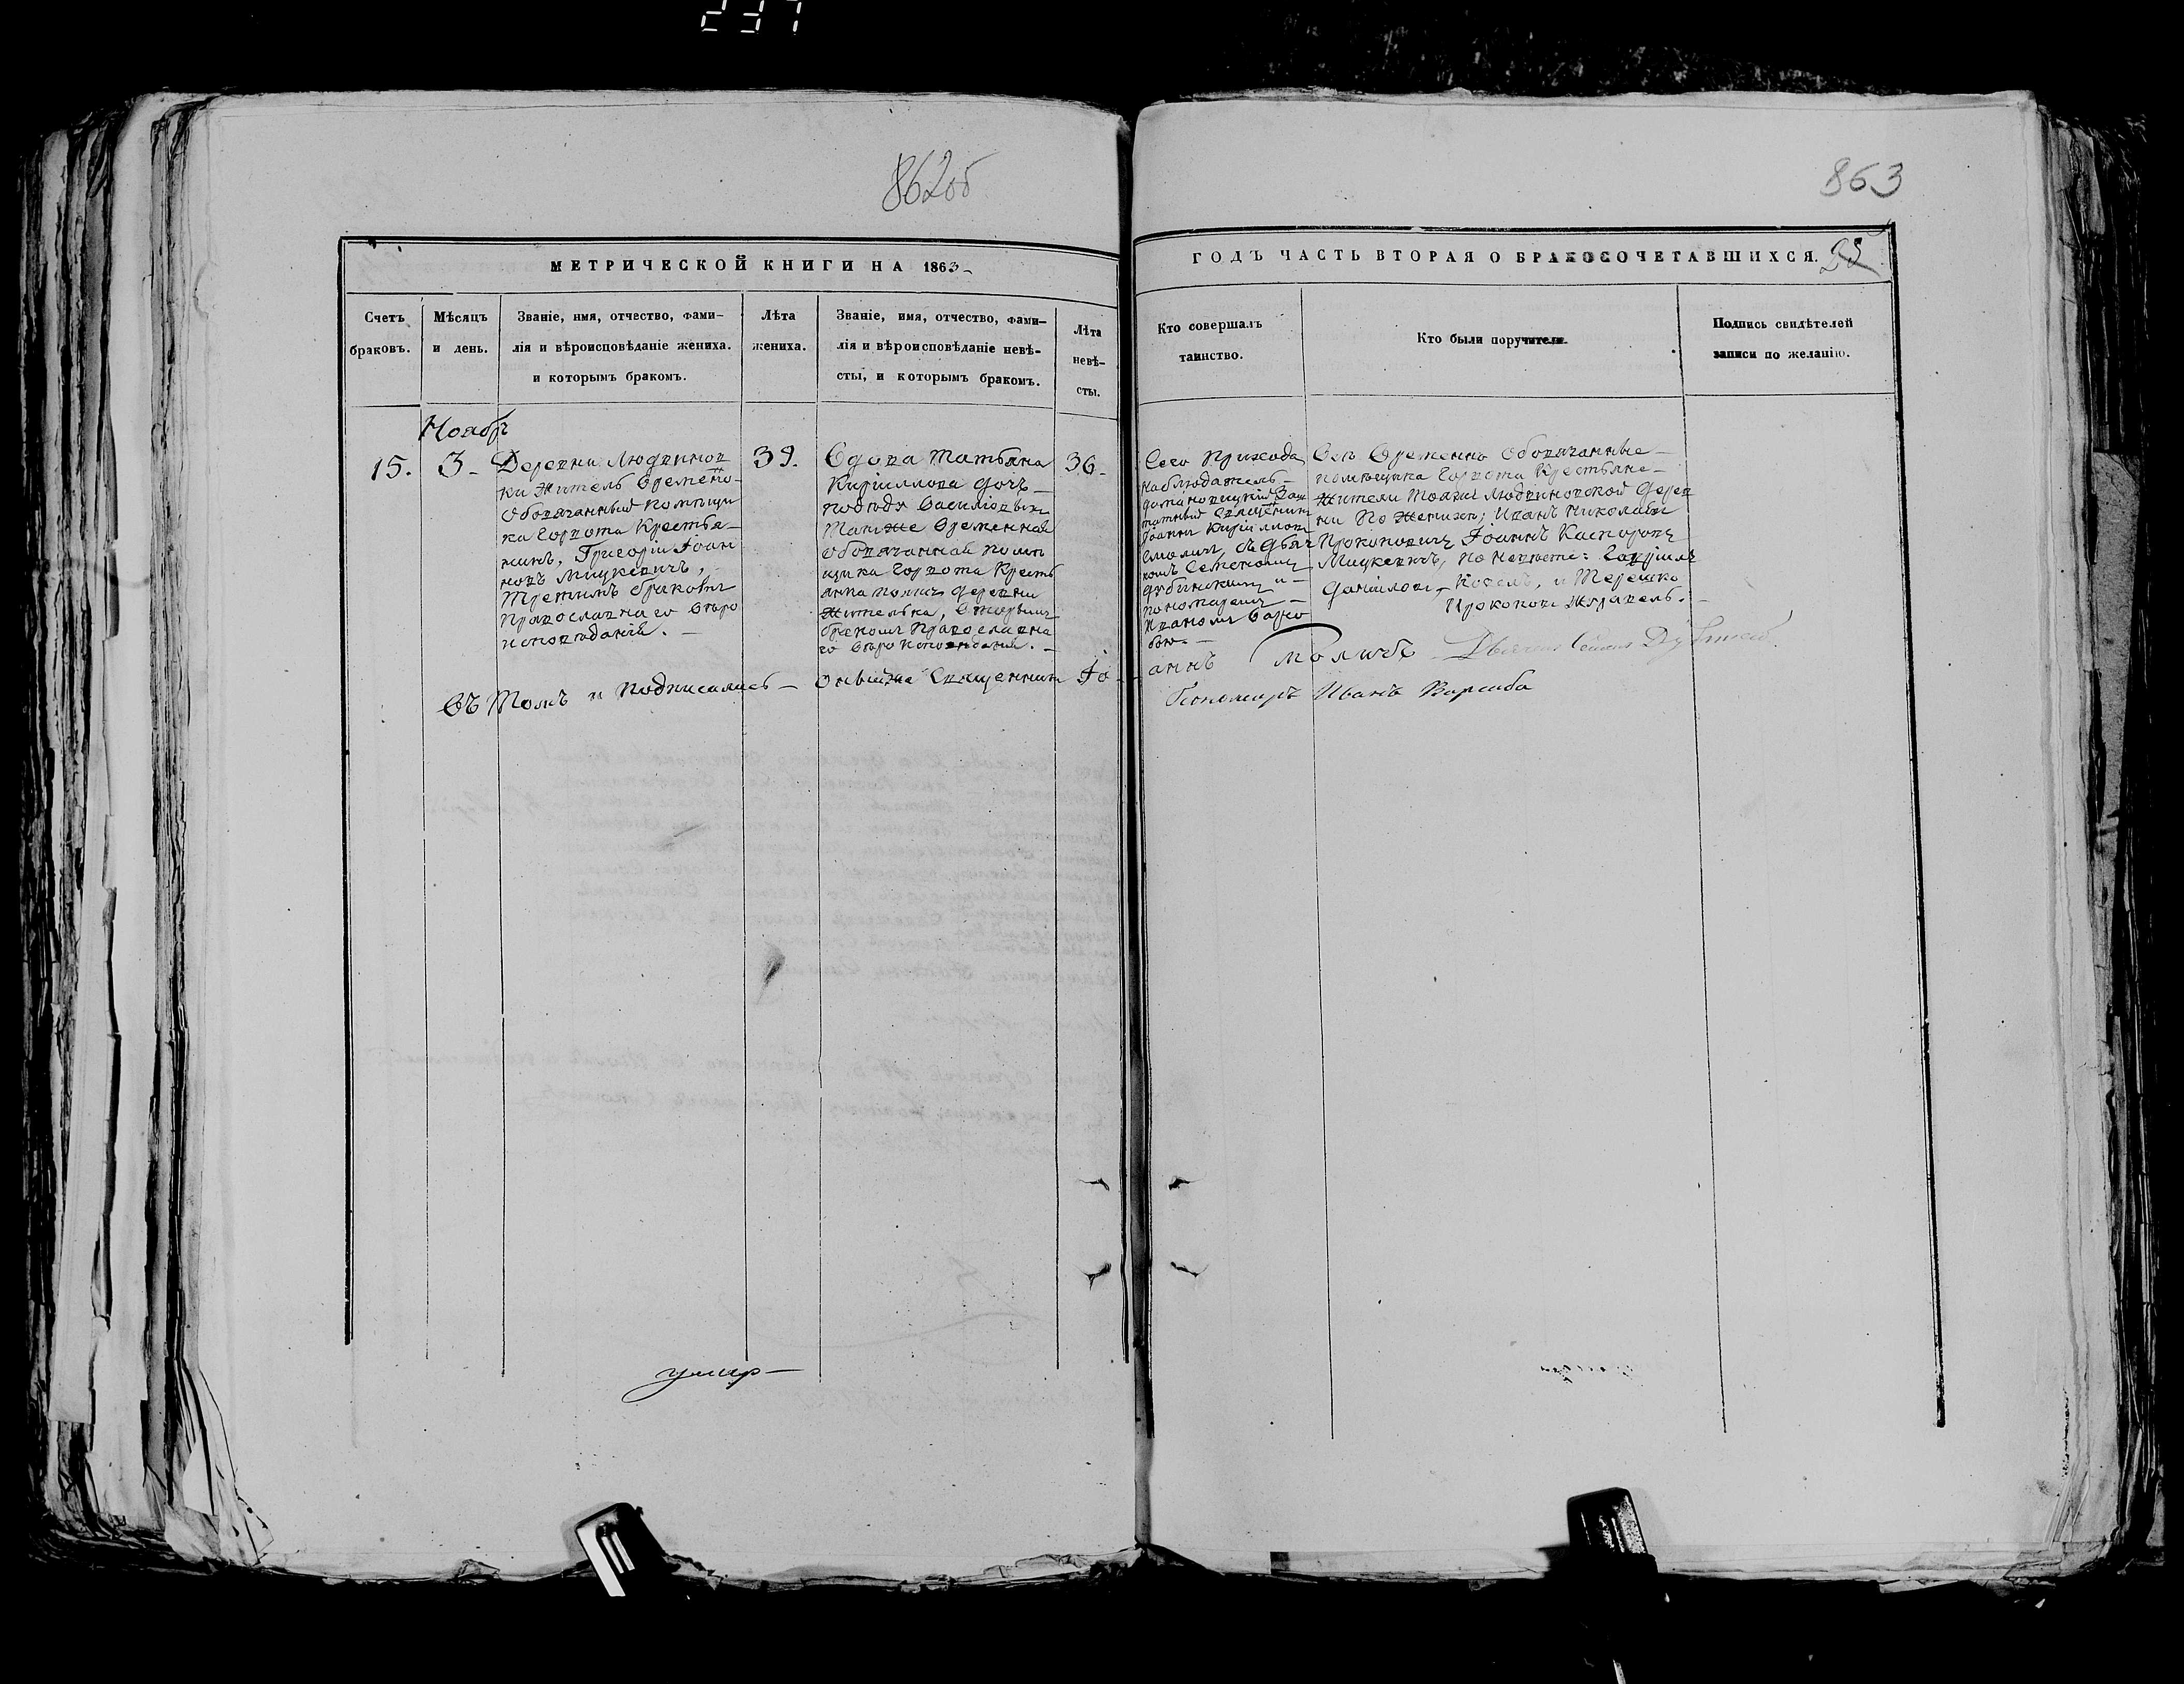 237
862об
863
МЕТРИЧЕСКОЙ КНИГИ НА 1863
ГОДЪ ЧАСТЬ ВТОРАЯ О БРАКОСОЧЕТАВШИХСЯ.
Счетъ браковъ.
Мѣсяцъ и день.
Званіе, имя, отчество, фами-
лія и вѣроисповѣданіе жениха.
и которымъ бракомъ.
Лѣта жениха.
Званіе, имя, отчество, фами-
лія и вѣроисповѣданіе невѣ-
сты, и которымъ бракомъ.
Лѣта
невѣ-
сты.
Кто совершалъ
таинство.
Кто были поручители.
Подпись свидѣтелей
записи по желанію.
Ноябр
15.
3
Деревни Людвинов
ки житель времено
обовязанный помѣщи
ка крестья
нинъ, Григорій Іоан
новъ Мицкевичъ,
третимъ бракомъ
православнаго веро
исповѣданія.
39.
Вдова Татьяна
Кириллова дочь
также временно
обовязанной помѣ
щика кресть
янка деревни
жителька,
бракомъ православна
го веро исповѣданія.
36
Сего прихода
наблюдатель
священник
Іоаннъ Кирилловъ
Смоличъ, съ дьяч
комъ Семеномъ
и
пономаремъ
Иваномъ Варео
бою.
временно обовязанные
помѣщика крестьяне
жители тояже Людвиновской дерев
ни по жениху; Иванъ Николаевъ
Прокоповичъ Іоаннъ Каспоровъ
Мицкевичъ, по невѣсте: Гавріилъ
Даніиловъ и Терешко
Прокоповъ Журавель.
Въ томъ и подписались оныйже Священник Іо
аннъ Смоличъ Дьячекъ Семенъ
Пономаръ Иванъ Вареоба
умир